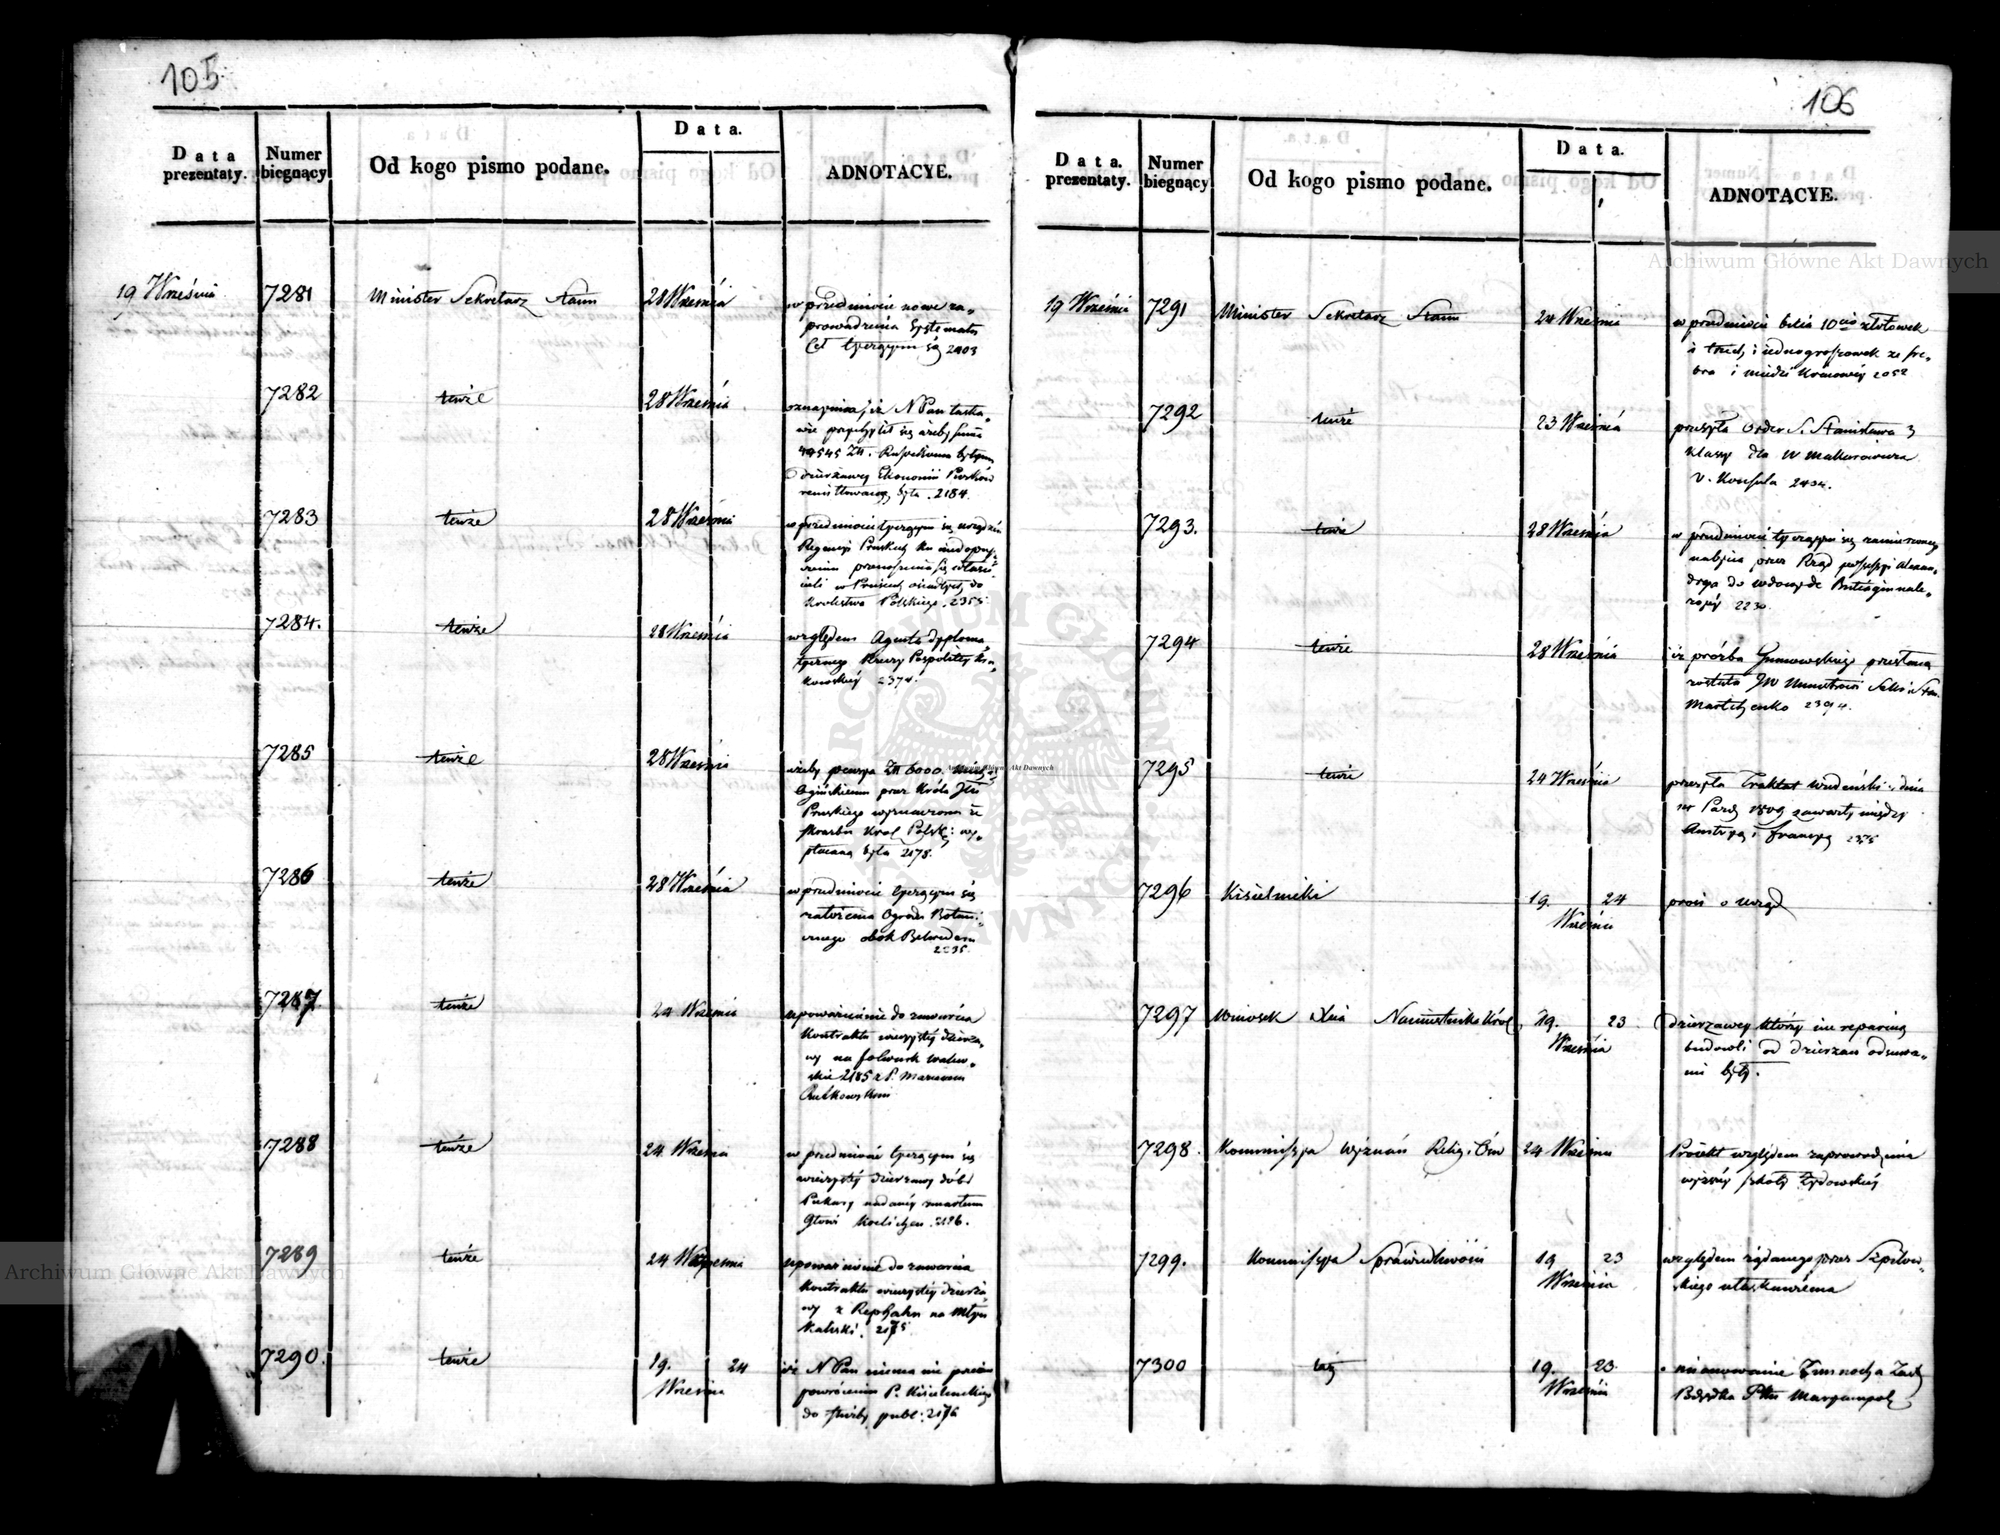 105
Data prezentaty.
Numer biegnący
Od kogo pismo podane.
Data.
ADNOTACYE.
19 Wrześnii 7281 Minister Sekretarz Stanu 28 Września
w przedmiocie nowe za-
prowadzenia Systematu
Ceł tyczącym się 2403
7282 tenże 28 Września
oznaymia, iż N Pan łaska-
wie przychylił się ażeby summa
dzierżawcy Ekonomii
była. 2184.
7283 tenże 28 Września
w przedmiocie tyczącym się
Regencyi Pruskiey ku niedopusz-
czeniu przenoszenia się
do
Królestwa Polskiego. 2355
7284. tenże 28 Września
względem Agenta dyploma-
tycznego Rzeczy Pospolitey Kra-
kowskiey 2374.
7285 tenże 28 Września
ażeby pensya Złł 6000.
Ogińskiemu przez Króla Jmci
Pruskiego wyznaczona ze
skarbu Król Polsk: wy-
płacana była 2178.
7286 tenże 28 Września
w przedmiocie tyczącym się
założenia Ogrodu Botani-
cznego obok Belwederu
2235.
7287 tenże 24 Września
upoważnienie do zawarcia
Kontraktu wieczystey dzierża-
wy na folwark
2185 z P.
Rutkowskim
7288 tenże 24 Września
w przedmiocie tyczącym się
wieczystey dzierżawy dóbr
nadaney
2186.
7289 tenże 24 Września
upoważnienie do zawarcia
Kontraktu wieczystey dzierża-
wy z Rephahn na Młyn
Kaliski. 2175
7290. tenże 19. 24
Września
iż N Pan niema nic przeciw
powróceniu P. Kisielnickiego
do służby publ: 2176
106
Data. prezentaty.
Numer biegnący
Od kogo pismo podane.
Data.
ADNOTACYE.
19 Września 7291 Minister Sekretarz Stanu 24 Września
w przedmiocie bicia 10cio złotówek
i trzech i jednogroszowek ze sre-
bra i miedzi Kraiowey 2052
7292 tenże 23 Września
przesyła Order S. Stanisława 3
klassy dla W Makarowicza
V. Konsula 2404.
7293. tenże 28 Września
w przedmiocie tyczącym się zamierzonego
nabycia przez Rząd possessyi
do
2230.
7294 tenże 28 Września
iż prośba Gumowskiego przesłaną
została JW
2394.
7295 tenże 24 Września
przesyła Traktat wiedeński dnia
1809 zawarty między
Austryą i Francyą 2375
7296 Kisielnicki 19. 24
Września
prosi o urząd
7297 Wniosek Xcia Namiestnika Król 19. 23
Września
dzierżawcy którzy nie reparuią
budowli od dzierżaw odsuwa-
ni byli.
7298. Kommissya Wyznań Relig. i Ośw 24 Września
Proiekt względem zaprowadzenia
wyższey szkoły Żydowskiey
7299. Kommissya Sprawiedliwości 19 23
Września
względem żądanego przez Szpilow-
skiego ułaskawienia
7300 taż 19. 23
Września
mianowanie
Pttu Maryampol
Archiwum Główne Akt Dawnych
Archiwum Główne Akt Dawnych
Archiwum Główne Akt Dawnych
ARCHIWUM GŁÓWNE AKT DAWNYCH